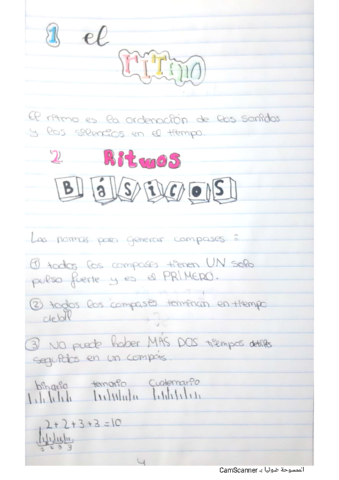 1 el
RITMO
El ritmo es la ordenación de los sonidos
y los silencios en el tiempo.
2 Ritmos
BÁSICOS
Las normas para generar compases:
① todos los compases tienen UN solo
pulso fuerte y es el PRIMERO.
② todos los compases terminan en tiempo
debil
③ NO puede haber MÁS DOS tiempos debiles
seguidos en un compás.
binario ternario cuaternario
2+2+3+3=10
4
الممسوحة ضوئيا بـ CamScanner